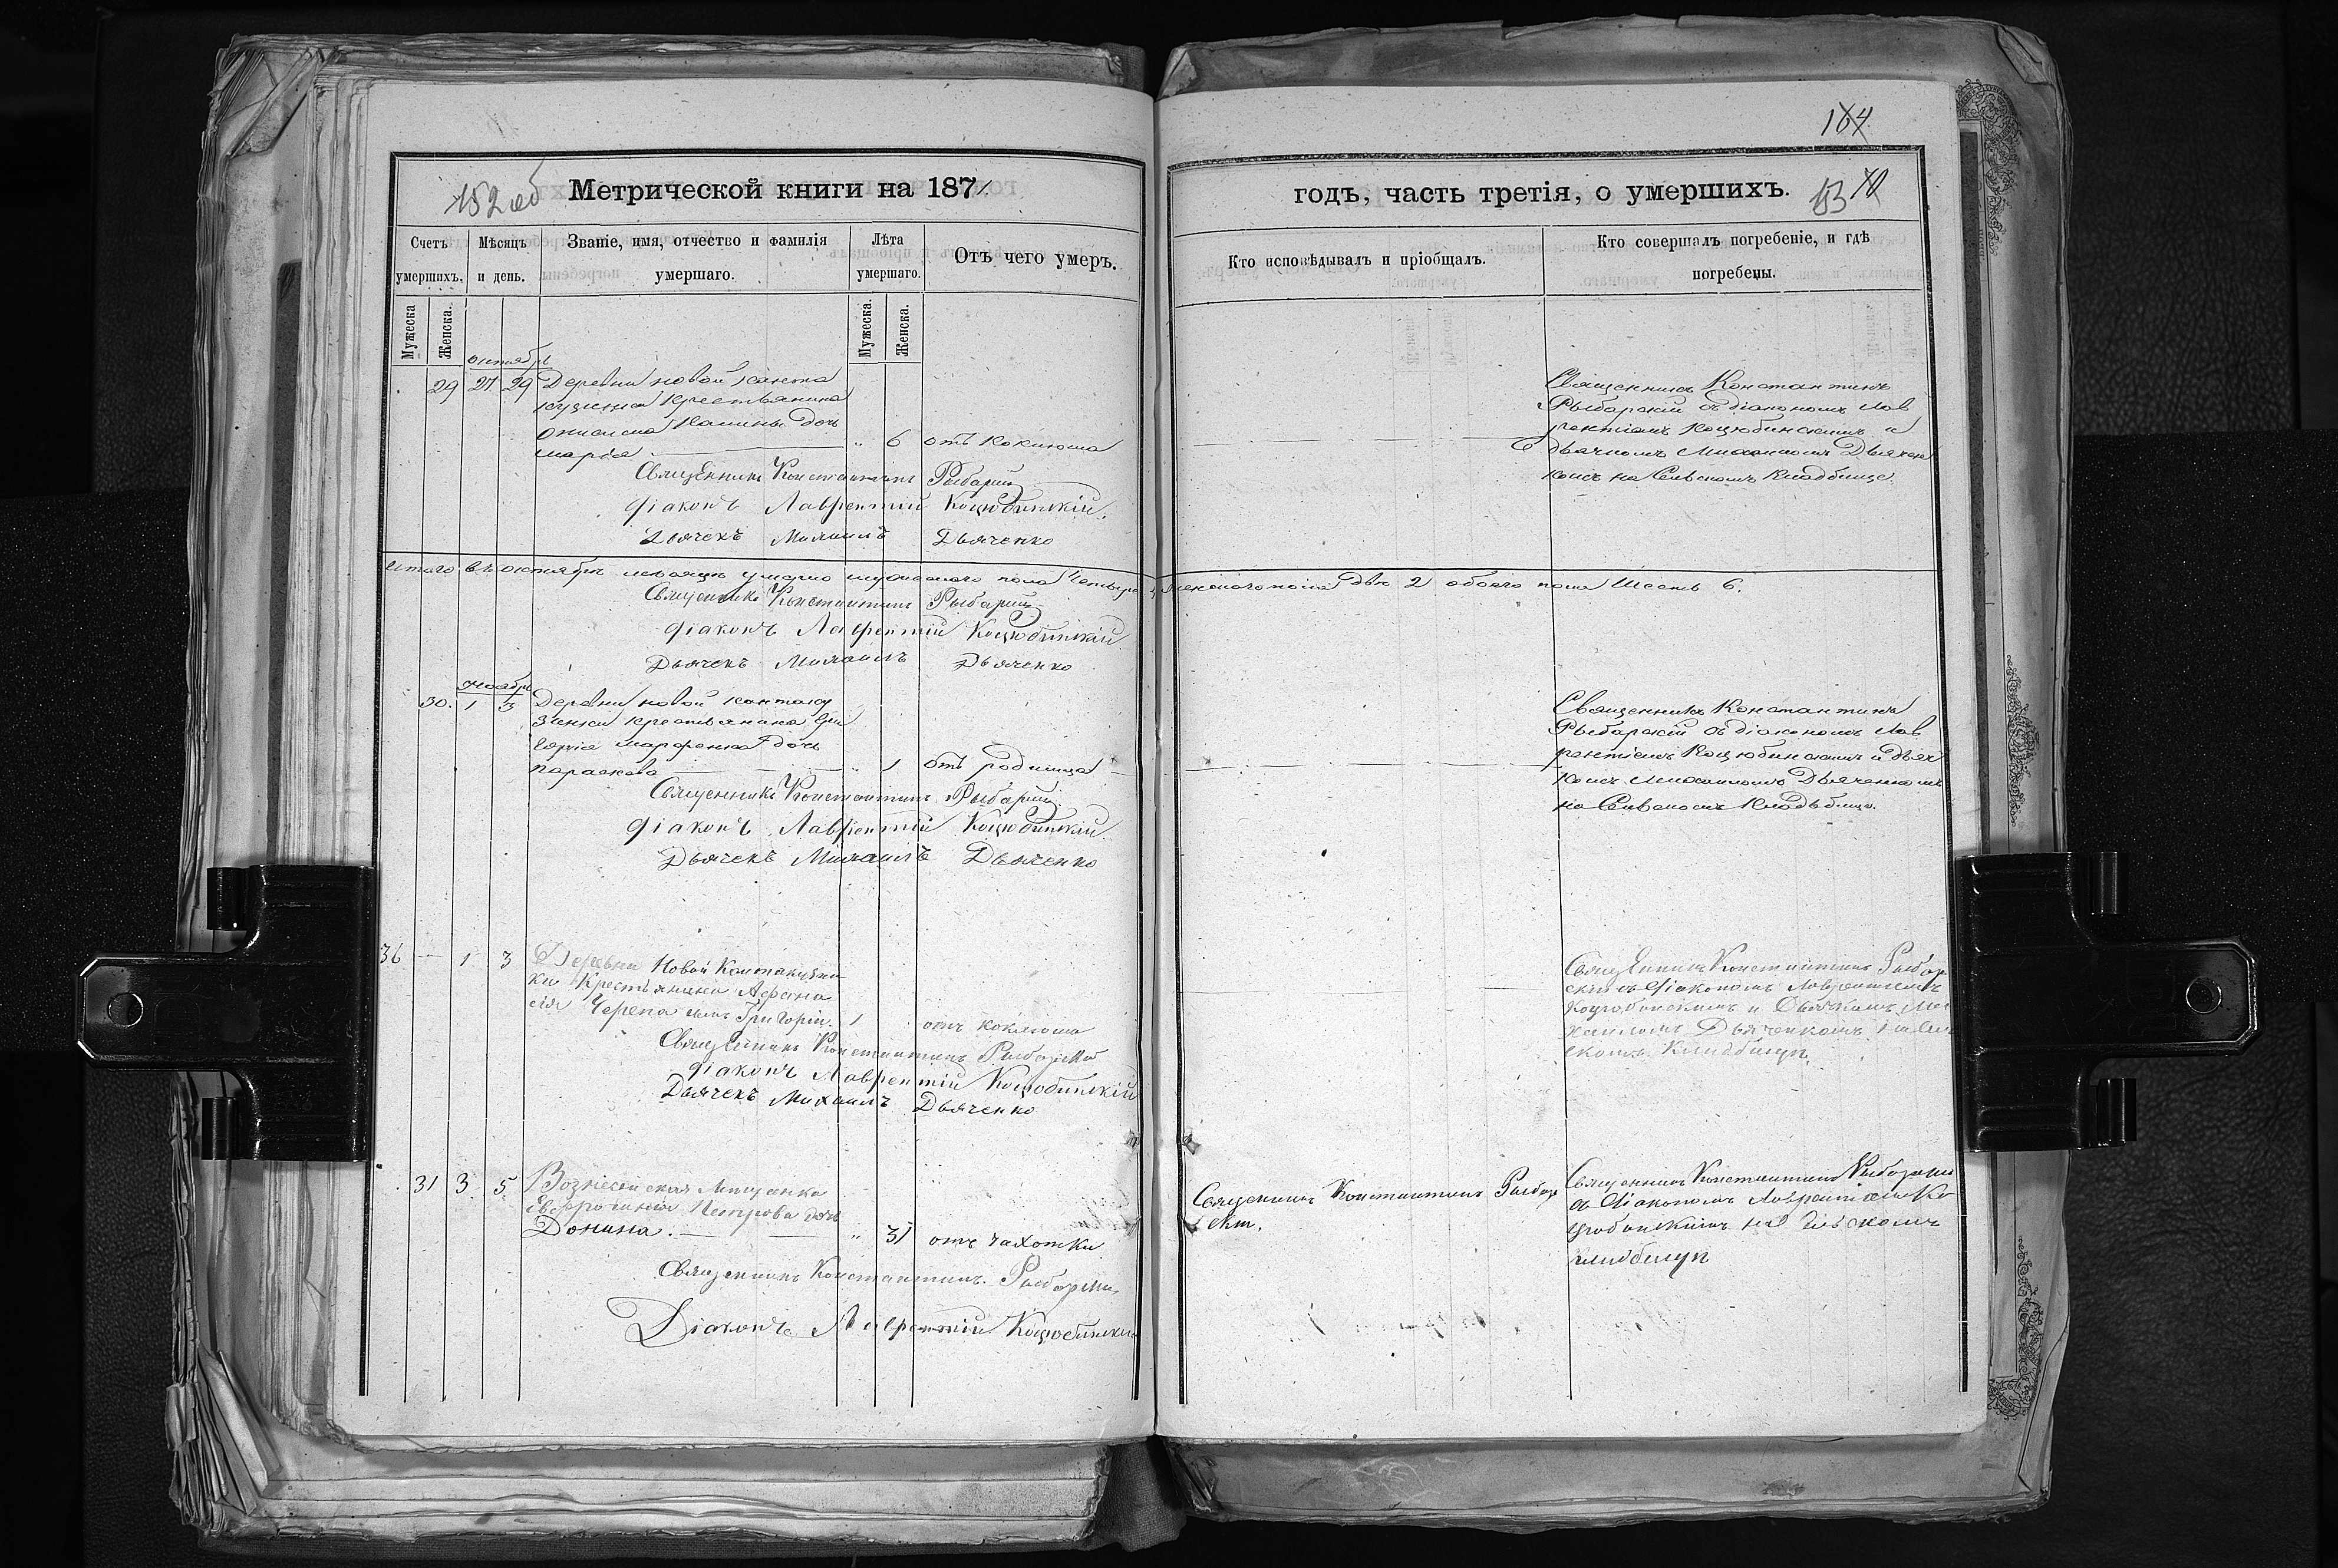 184
152 об
Метрической книги на 187
годъ, часть третія, о умершихъ.
153
Счетъ умершихъ.
Мѣсяцъ и день.
Званіе, имя, отчество и фамилія умершаго.
Лѣта умершаго.
Отъ чего умеръ.
Кто исповѣдывалъ и пріобщалъ.
Кто совершалъ погребеніе, и гдѣ погребены.
Мужеска
Женска.
Мужеска.
Женска.
октябрь
29 27 29 Деревни новой Канта
кузенки Крестьянина
дочь
марія „ 6 отъ коклюша
Священникъ Константинъ
Рыбарскій съ діакономъ Лав
рентіемъ Коцюбинскимъ и
дьячкомъ Михаиломъ Дьячен
комъ на Сельскомъ кладбище.
Священникъ Константинъ Рыбарскій
Діаконъ Лаврентій Коцюбинскій.
Дьячекъ Михаилъ Дьяченко
Итого въ октябрѣ мѣсяцѣ умерло мужескаго пола четыре 4, женскаго пола двѣ 2 обоего пола шесть 6.
Священникъ Константинъ Рыбарскій
Діаконъ Лаврентій Коцюбинскій
Дьячекъ Михаилъ Дьяченко
Ноябрь
30. 1 3 Деревни новой Кантаку
зенки крестьянина Гри
горія дочь
параскева „ 1 отъ родимца
Священникъ Константинъ
Рыбарскій съ діакономъ Лав
рентіемъ Коцюбинскимъ и дьяч
комъ Михаиломъ Дьяченкомъ
на Сельскомъ Кладбище.
Священникъ Константинъ Рыбарскій
Діаконъ Лаврентій Коцюбинскій.
Дьячекъ Михаилъ Дьяченко
36 — 1 3 Деревни Новой Кантакузен
ки Крестьянина Афана
сія Черепа сынъ Григорій. 1 отъ коклюша
Священникъ Константинъ Рыбар
скій съ Діакономъ Лаврентіемъ
Коцюбинскимъ и Дьячкомъ Ми
хаиломъ Дьяченкомъ на Сель
скомъ Кладбищѣ.
Священникъ Константинъ Рыбарскій
Діаконъ Лаврентій Коцюбинскій
Дьячекъ Михаилъ Дьяченко
31 3 5 Вознесенская Мещанка
Евфросинія Петрова дочь
Донина. „ 31 отъ чахотки
Священникъ Константинъ Рыбар
скій.
Священникъ Константинъ Рыбарскій
съ Діакономъ Лаврентіемъ Ко
цюбинскимъ на Сельскомъ
кладбищѣ
Священникъ Константинъ Рыбарскій
Діаконъ Лаврентій Коцюбинскій